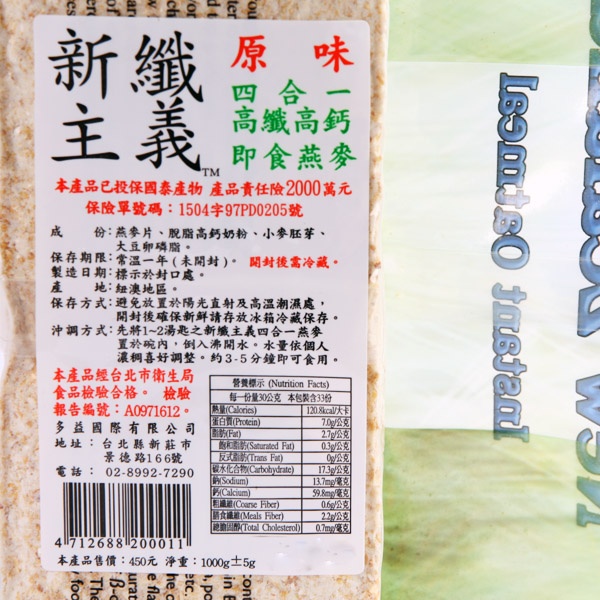 新纖
主義™
原味
四合一
高纖高鈣
即食燕麥
本產品已投保國泰產物 產品責任險2000萬元
保險單號碼：1504字97PD0205號
成　　份：燕麥片、脫脂高鈣奶粉、小麥胚芽、
大豆卵磷脂。
保存期限：常溫一年(未開封)。 開封後需冷藏。
製造日期：標示於封口處。
產　　地：紐澳地區。
保存方式：避免放置於陽光直射及高溫潮濕處，
開封後確保新鮮請存放冰箱冷藏保存。
沖調方式：先將1~2湯匙之新纖主義四合一燕麥
置於碗內，倒入沸開水。水量依個人
濃稠喜好調整。約3-5分鐘即可食用。
本產品經台北市衛生局
食品檢驗合格。 檢驗
報告編號：A0971612。
多益國際有限公司
地址：台北縣新莊市
景德路166號
電話： 02-8992-7290
4 712688 200011
本產品售價：450元 淨重：1000g±5g
營養標示 (Nutrition Facts)
每一份量30公克 本包裝含33份
熱量(Calories) 120.8kcal/大卡
蛋白質(Protein) 7.0g/公克
脂肪(Fat) 2.7g/公克
飽和脂肪(Saturated Fat) 0.3g/公克
反式脂肪(Trans Fat) 0g/公克
碳水化合物(Carbohydrate) 17.3g/公克
鈉(Sodium) 13.7mg/毫克
鈣(Calcium) 59.8mg/毫克
粗纖維(Coarse Fiber) 0.6g/公克
膳食纖維(Meals Fiber) 2.2g/公克
總膽固醇(Total Cholesterol) 0.7mg/毫克
Instant Oatmeal